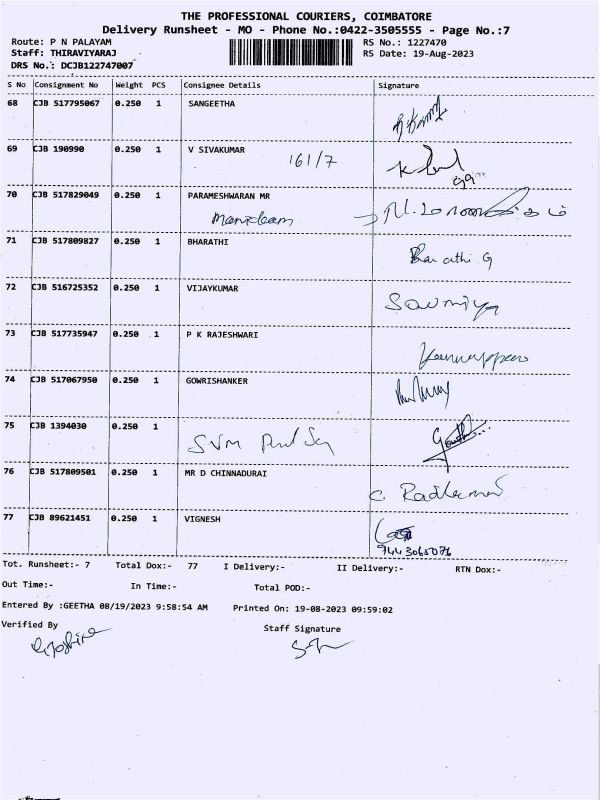 THE PROFESSIONAL COURIERS, COIMBATORE
Delivery Runsheet - MO - Phone No.:0422-3505555 - Page No.:7
Route: P N PALAYAM RS No.: 1227470
Staff: THIRAVIYARAJ RS Date: 19-Aug-2023
DRS No.: DCJB122747007
S No Consignment No Weight PCS Consignee Details Signature
68 CJB 517795067 0.250 1 SANGEETHA
69 CJB 190990 0.250 1 V SIVAKUMAR
161/7
70 CJB 517829049 0.250 1 PARAMESHWARAN MR
71 CJB 517809827 0.250 1 BHARATHI
Barathi G
72 CJB 516725352 0.250 1 VIJAYKUMAR
Sowmiya
73 CJB 517735947 0.250 1 P K RAJESHWARI
74 CJB 517067950 0.250 1 GOWRISHANKER
75 CJB 1394030 0.250 1
SVM
76 CJB 517809501 0.250 1 MR D CHINNADURAI
C.
77 CJB 89621451 0.250 1 VIGNESH
9443065076
Tot. Runsheet:- 7 Total Dox:- 77 I Delivery:- II Delivery:- RTN Dox:-
Out Time:- In Time:- Total POD:-
Entered By :GEETHA 08/19/2023 9:58:54 AM Printed On: 19-08-2023 09:59:02
Verified By Staff Signature